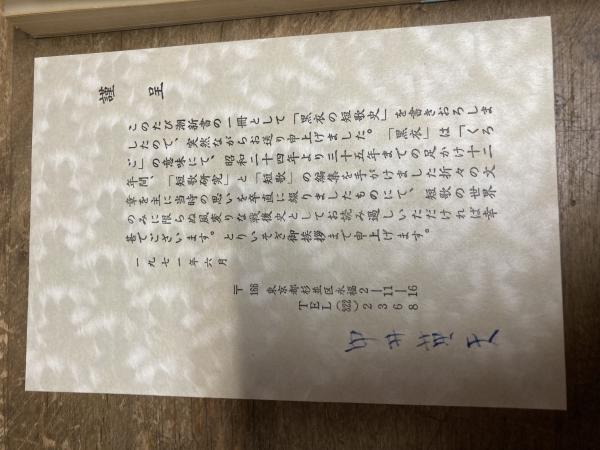 謹呈
このたび潮新書の一冊として「黒衣の短歌史」を書きおろしま
したので、突然ながらお送り申上げました。「黒衣」は「くろ
ご」の意味にて、昭和二十四年より三十五年までの足かけ十二
年間、「短歌研究」と「短歌」の編集を手がけました折々の文
章を主に当時の思いを率直に綴りましたものにて、短歌の世界
のみに限らぬ風変りな戦後史としてお読み過しいただければ幸
甚でございます。とりいそぎ御挨拶まで申上げます。
一九七一年六月
〒168 東京都杉並区永福2-11-16
TEL(322)2368
中井英夫